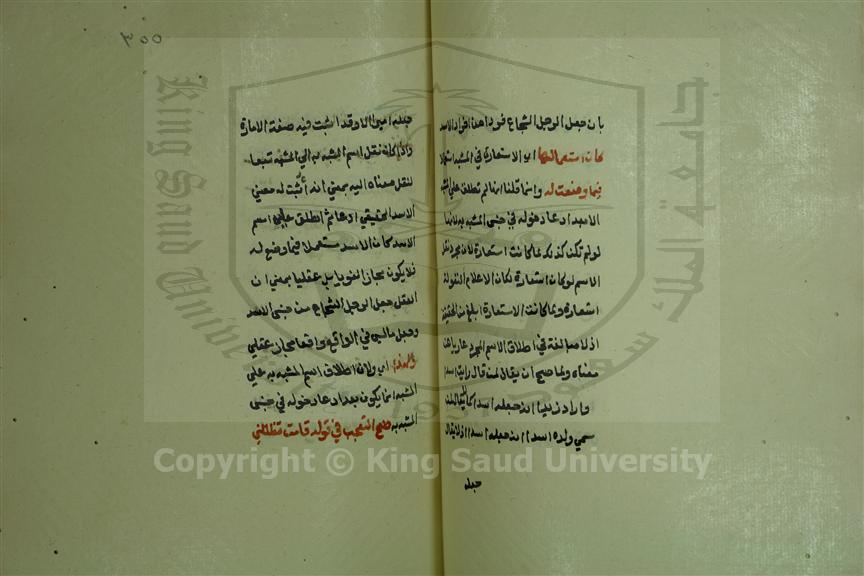 ٣٠٠
بان جعل الرجل الشجاع فردا من افراد الاسد
كان استعمالها اي الاستعارة في المشبه استعمالا
فيما وضعت له وانما قلنا انها لم تطلق علي المشبه
الا بعد ادعاء دخوله في جنس المشبه به لانها
لو لم تكن كذلك لما كانت استعارة لان مجرد نقل
الاسم لو كان استعارة لكان الاعلام المنقولة
استعارة ولما كانت الاستعارة ابلغ من الحقيقة
اذ لا مبالغة في اطلاق الاسم المجرد عاريا عن
معناه ولما صح ان يقال لمن قال رايت اسدا
واراد زيدا انه جعله اسدا كما لا يقال لمن
سمي ولده اسدا انه جعله اسدا اذ لا يقال
جعله
جعله اميرا الا وقد اثبت فيه صفة الامارة
واذا كان نقل اسم المشبه به الي المشبه تبعا
لنقل معناه اليه بمعني انه اثبت له معني
الاسد الحقيقي ادعاء ثم اطلق عليه اسم
الاسد كان الاسد مستعملا فيما وضع له
فلا يكون مجازا لغويا بل عقليا بمعني ان
العقل جعل الرجل الشجاع من جنس الاسد
وجعل ما ليس في الواقع واقعا مجاز عقلي
ولهذا اي ولان اطلاق اسم المشبه به علي
المشبه انما يكون بعد ادعاء دخوله في جنس
المشبه به صح التعجب في قوله قامت تظللني
Copyright © King Saud University
King Saud University
جامعة الملك سعود
1957